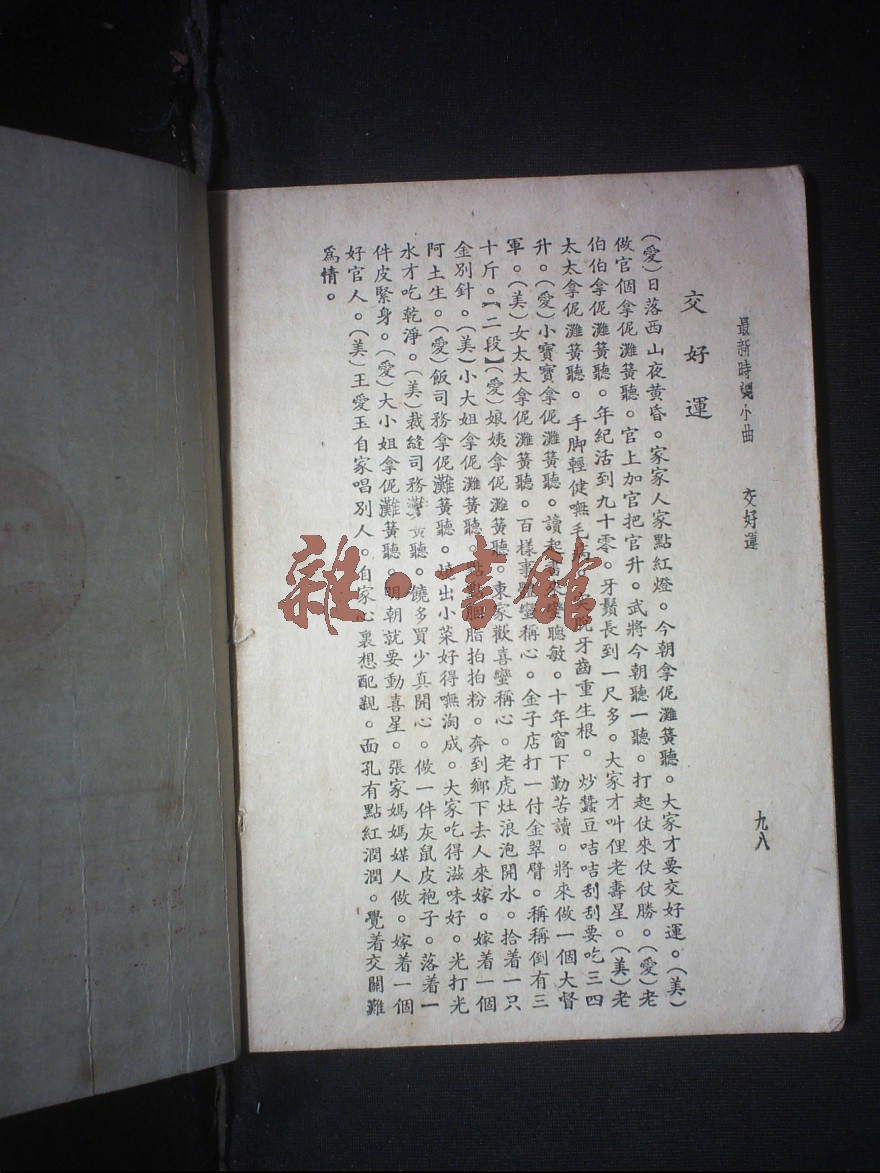 最新時調小曲　交好運　九八
交好運
(愛)日落西山夜黄昏。家家人家點紅燈。今朝拿伲灘簧聽。大家才要交好運。(美)
做官個拿伲灘簧聽。官上加官把官升。武將今朝聽一聽。打起仗來仗仗勝。(愛)老
伯伯拿伲灘簧聽。年紀活到九十零。牙鬚長到一尺多。大家才叫俚老壽星。(美)老
太太拿伲灘簧聽。手脚輕健嘸毛脱牙齒重生根。炒蠶豆咭咭刮刮要吃三四
升。(愛)小寶寶拿伲灘簧聽。讀起聰敏。十年窗下勤苦讀。將來做一個大督
軍。(美)女太太拿伲灘簧聽。百樣事蠻稱心。金子店打一付金翠臂。稱稱倒有三
十斤。【二段】(愛)娘姨拿伲灘簧聽。東家歡喜蠻稱心。老虎灶浪泡開水。拾着一只
金别針。(美)小大姐拿伲灘簧聽。脂拍拍粉。奔到鄉下去人來嫁。嫁着一個
阿土生。(愛)飯司務拿伲灘簧聽。出小菜好得嘸淘成。大家吃得滋味好。光打光
水才吃乾淨。(美)裁縫司務聽。饒多買少真開心。做一件灰鼠皮袍子。落着一
件皮緊身。(愛)大小姐拿伲灘簧聽。明朝就要動喜星。張家媽媽媒人做。嫁着一個
好官人。(美)王愛玉自家唱别人。自家心裏想配親。面孔有點紅潤潤。覺着交關難
爲情。
雜·書館